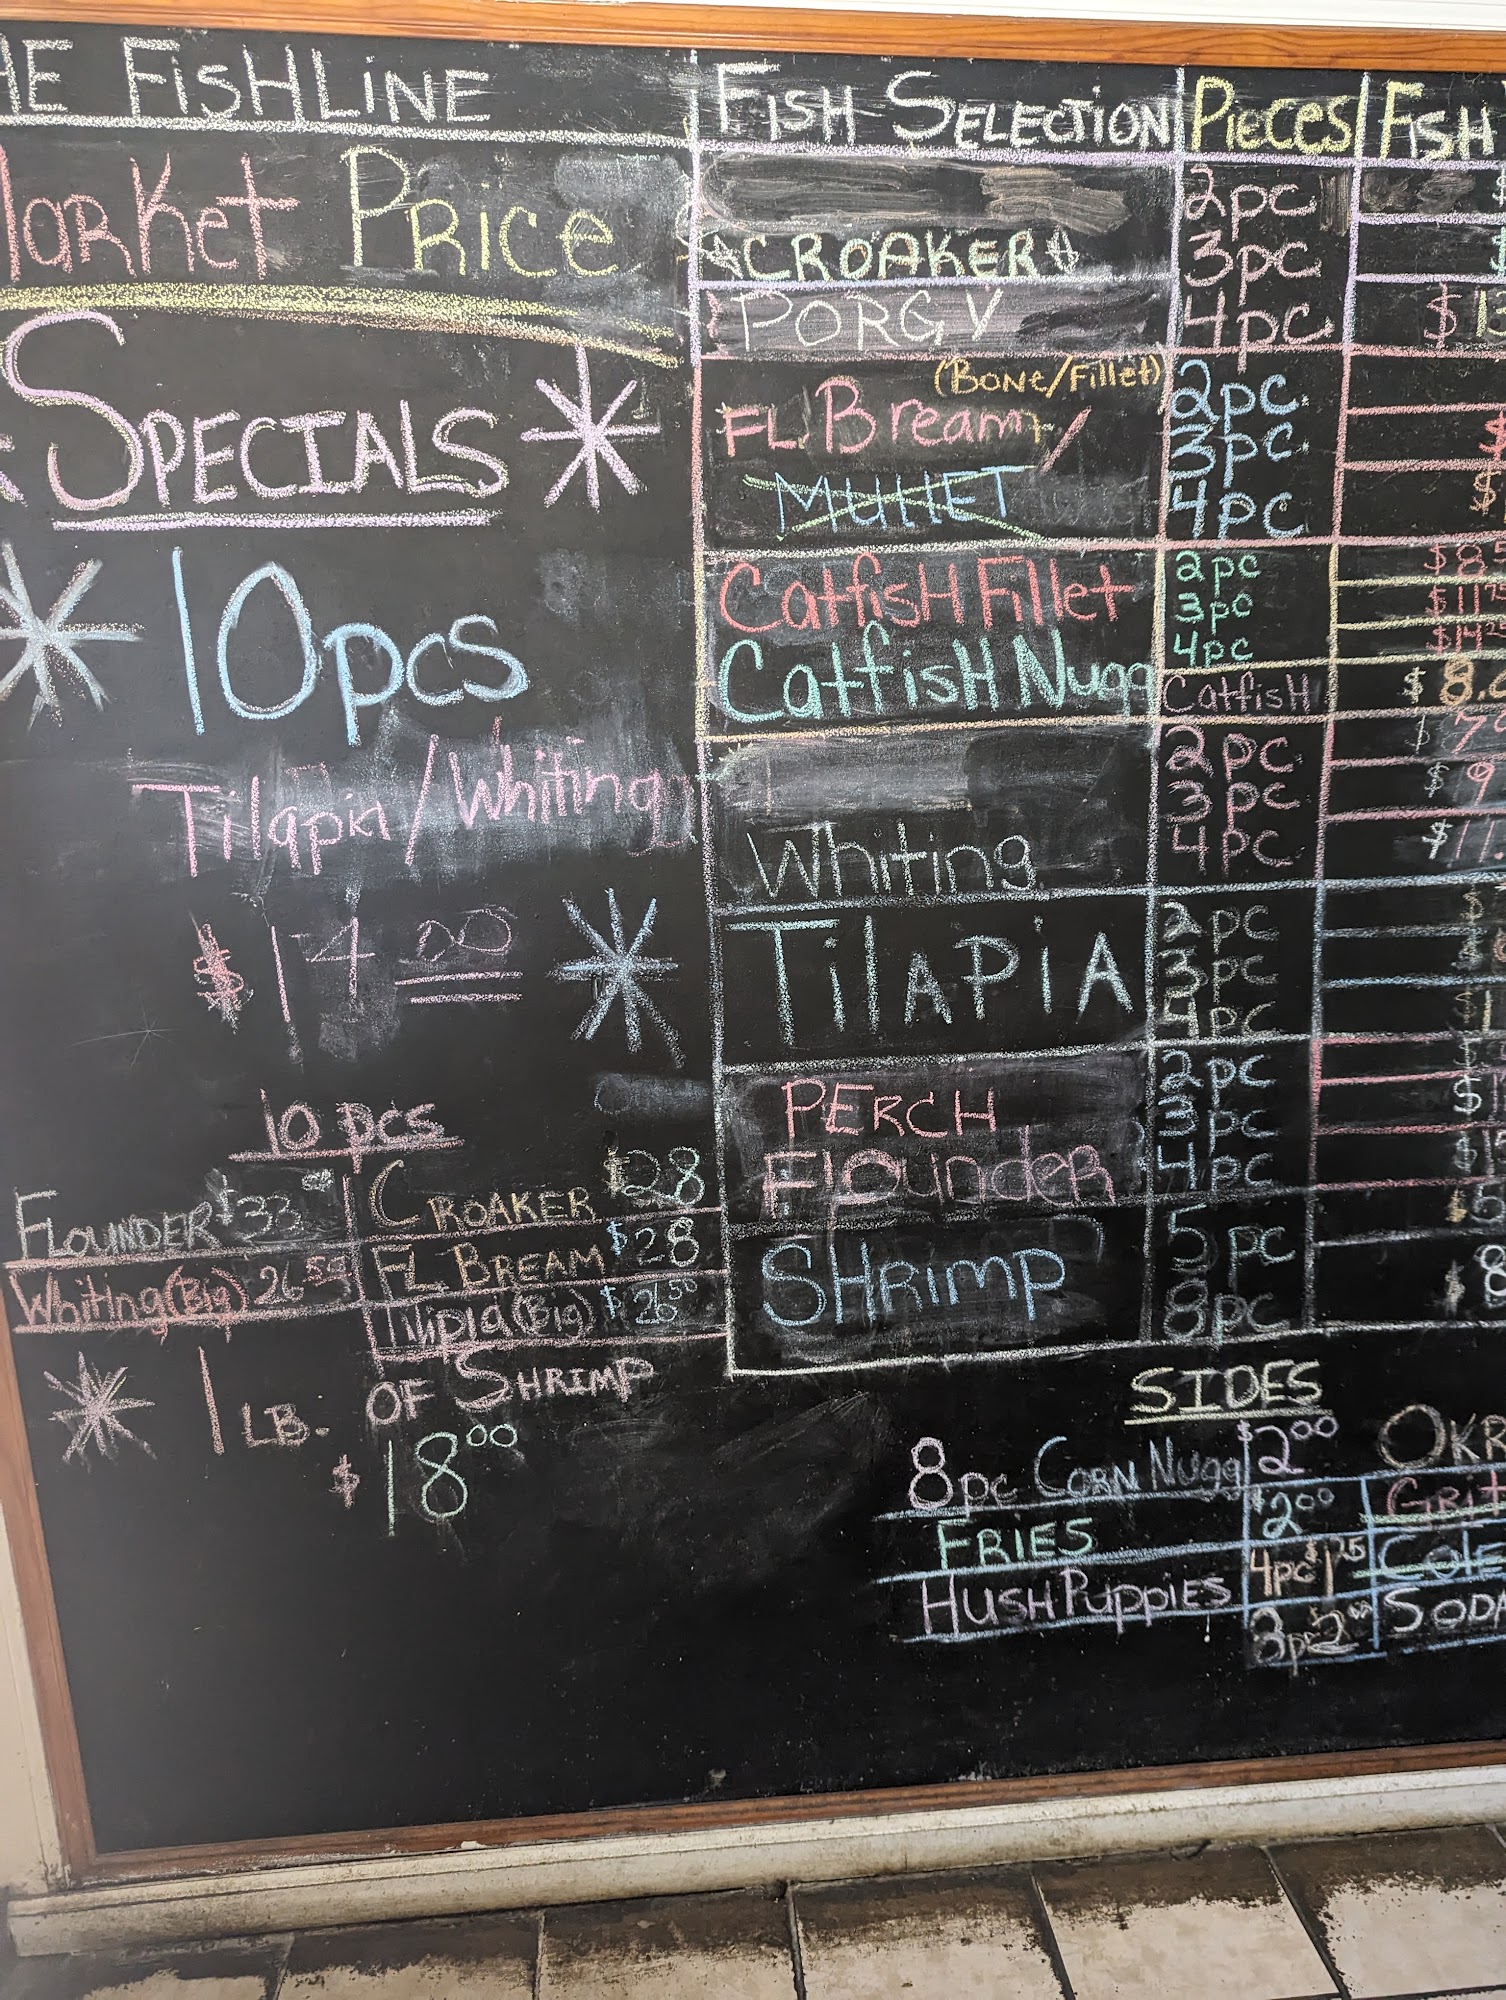 HE FISHLINE
Market Price
SPECIALS
10pcs
Tilapia/Whiting
$14 00
10 pcs
FLOUNDER $33 00
CROAKER $28
Whiting (Big) 26 50
FL BREAM $28
Tilipia (Big) $26 50
1 LB. OF SHRIMP
$18 00
FISH SELECTION PIECES FISH
2pc
CROAKER 3pc
PORGY 4pc $13
(BONE/Fillet) 2pc
FL. Bream / 3pc
MULLET 4pc
Catfish Fillet 2pc $8.5
3pc $11 75
4pc $14 25
Catfish Nugg Catfish $8.
2pc $7
3pc $9
Whiting 4pc $11.
2pc
TilAPiA 3pc
4pc
PERCH 2pc
3pc
Flounder 4pc $15
SHRIMP 5pc $5
8pc $8
SIDES
8pc CORN Nugg $2 00 OKR
FRIES $2 00 GRIT
HUSH Puppies 4pc $1 25 COLE
8pc $2 SODA